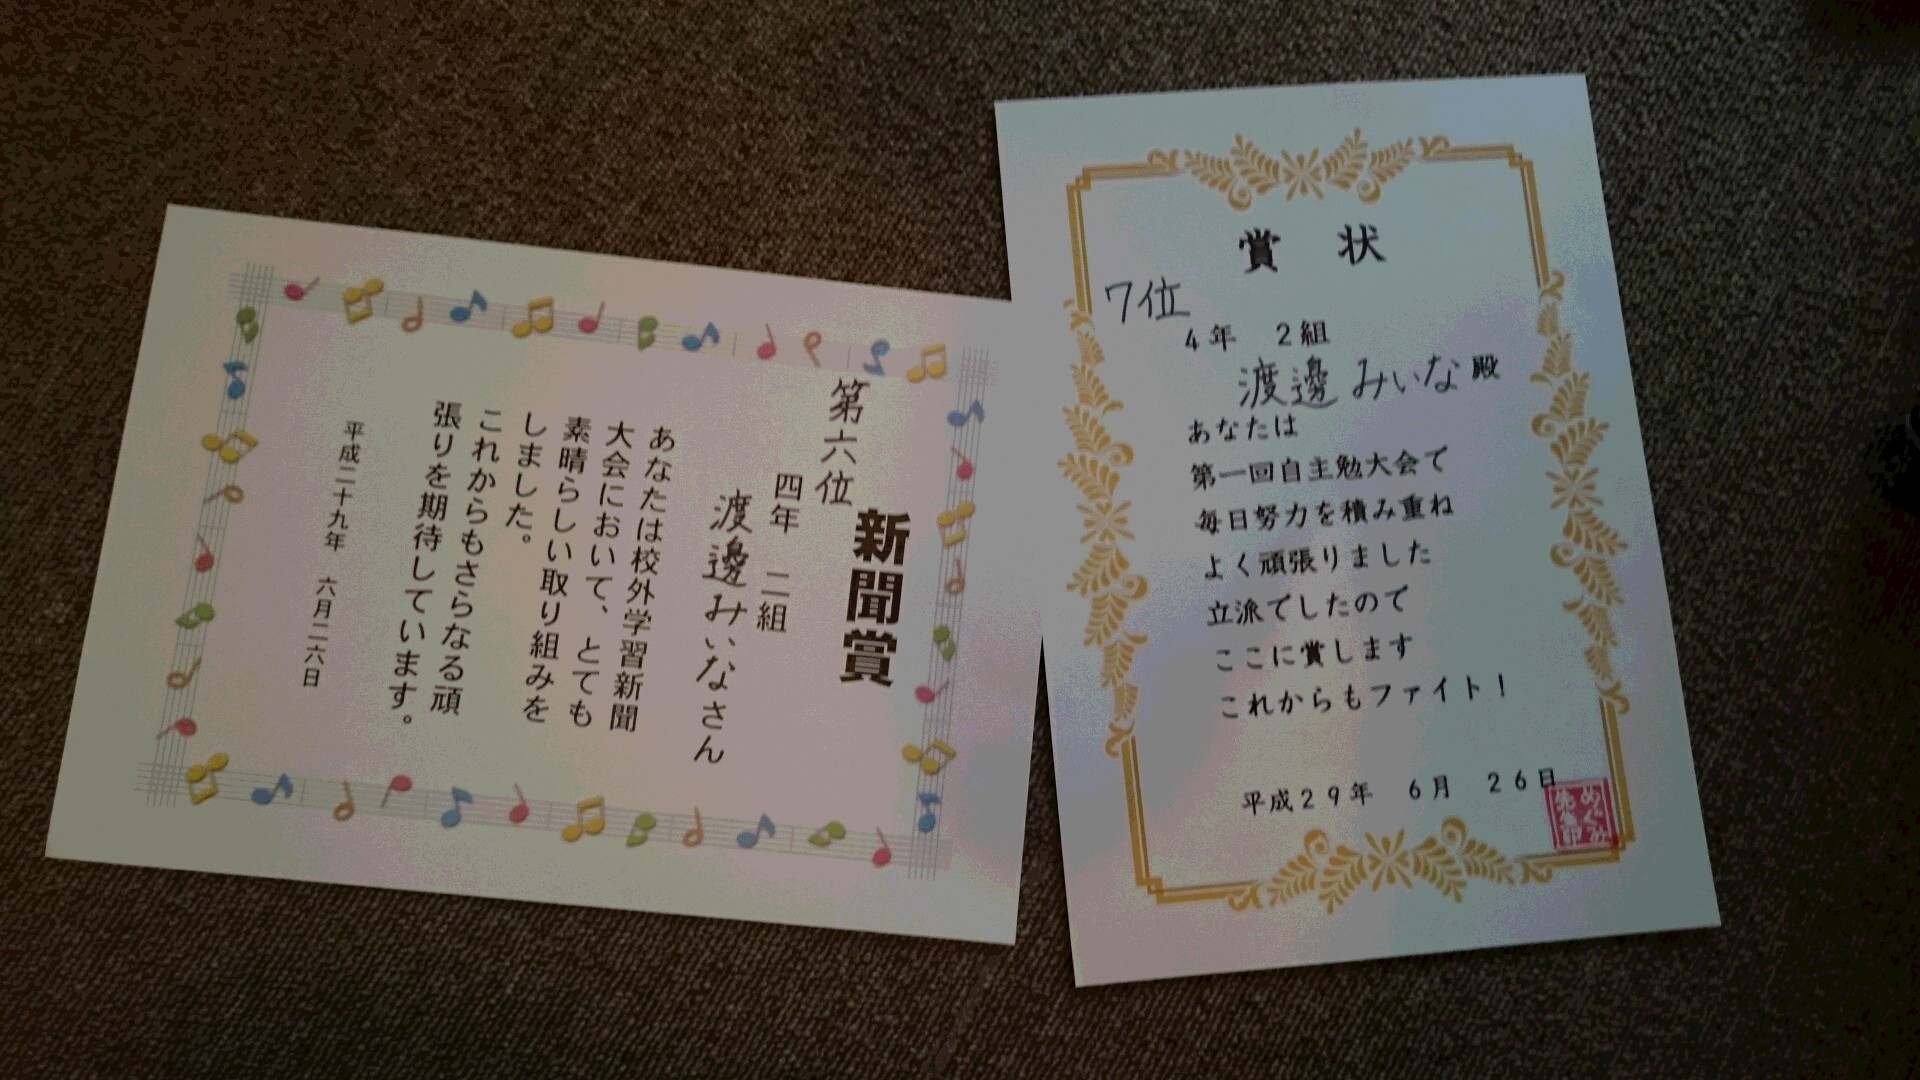 新聞賞
第六位
四年 二組
渡邊みぃなさん
あなたは校外学習新聞
大会において、とても
素晴らしい取り組みを
しました。
これからもさらなる頑
張りを期待しています。
平成二十九年 六月二六日
賞 状
7位
4年 2組
渡邊みぃな殿
あなたは
第一回自主勉大会で
毎日努力を積み重ね
よく頑張りました
立派でしたので
ここに賞します
これからもファイト！
平成29年 6月 26日
めぐみ
先生印